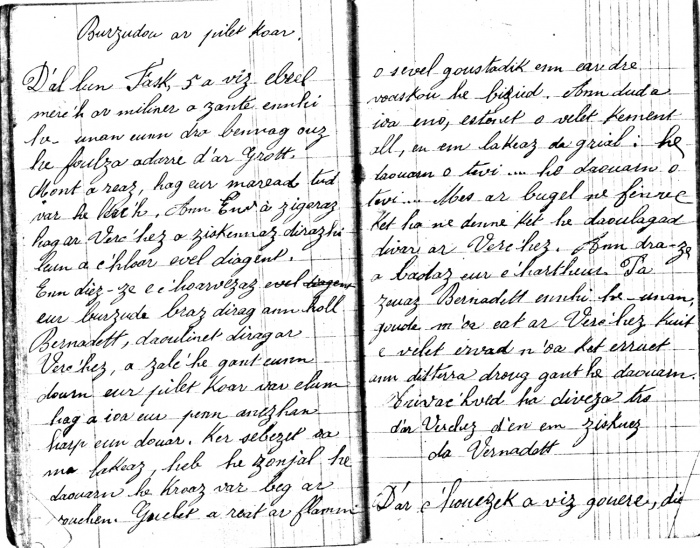 Burzudou ar pilet koar.
D'al lun Fask, 5 a viz ebrel
merc'h ar miliner a zante ennhi
he-unan eunn dra bennag ouz
he foulza adarre d'ar Grott.
Mont a reaz, hag eur maread tud
var he lerc'h. Ann Env a zigoraz
hag ar Verc'hez a ziskennaz dirazhi
leun a c'hloar evel diagent.
Enn diez-ze e c'hoarvezaz evel diagent
eur burzude braz dirag ann holl
Bernadett, daoulinet dirag ar
Verc'hez, a zalc'he gant eunn
dourn eur pilet koar var elum
hag a ioa eur penn anezhan
harp eun douar. Ker sebezet oa
ma lakeaz, heb he zonjal he
daouarn he kroaz var beg ar
rouchen. Guelet a reat ar flamm
o sevel goustadik enn ear dre
voaskou he bizied. Ann dud a
ioa eno, estonet o velet kement
all, en em lakeaz da grial: he
daouarn o tevi .... ho daouarn o
tevi .... Mes ar bugel ne finvec
ket ha ne denne ket he daoulagad
divar ar Verc'hez. Ann dra-ze
a badaz eur c'hartheur. Pa
zeuaz Bernadett ennhi he-unan,
goude m'oa eat ar Verc'hez kuit
e velet ervad n'oa ket erruet
ann disterra droug gant he daouarn.
Trivac'hved ha diveza tro
d'ar Verchez d'en em ziskuez
da Vernadett
D'ar c'houezek a viz gouere, da